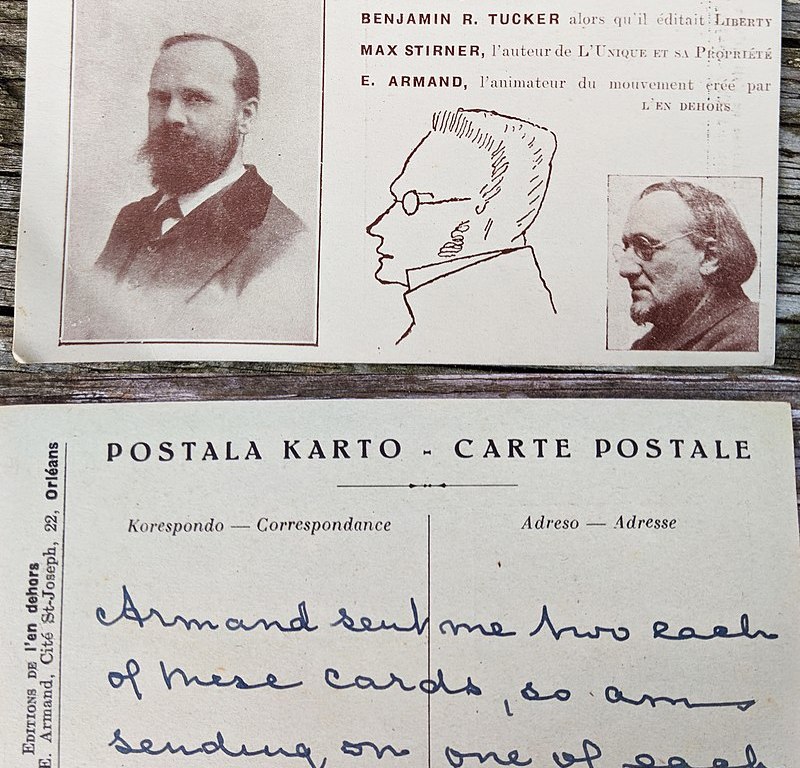 BENJAMIN R. TUCKER alors qu'il éditait LIBERTY
MAX STIRNER, l'auteur de L'UNIQUE ET SA PROPRIÉTÉ
E. ARMAND, l'animateur du mouvement créé par
L'EN DEHORS
POSTALA KARTO - CARTE POSTALE
Korespondo — Correspondance
Adreso — Adresse
EDITIONS DE l'en dehors
E. Armand, Cité St-Joseph, 22, Orléans
Armand sent me two each
of these cards, so am
sending on one of each